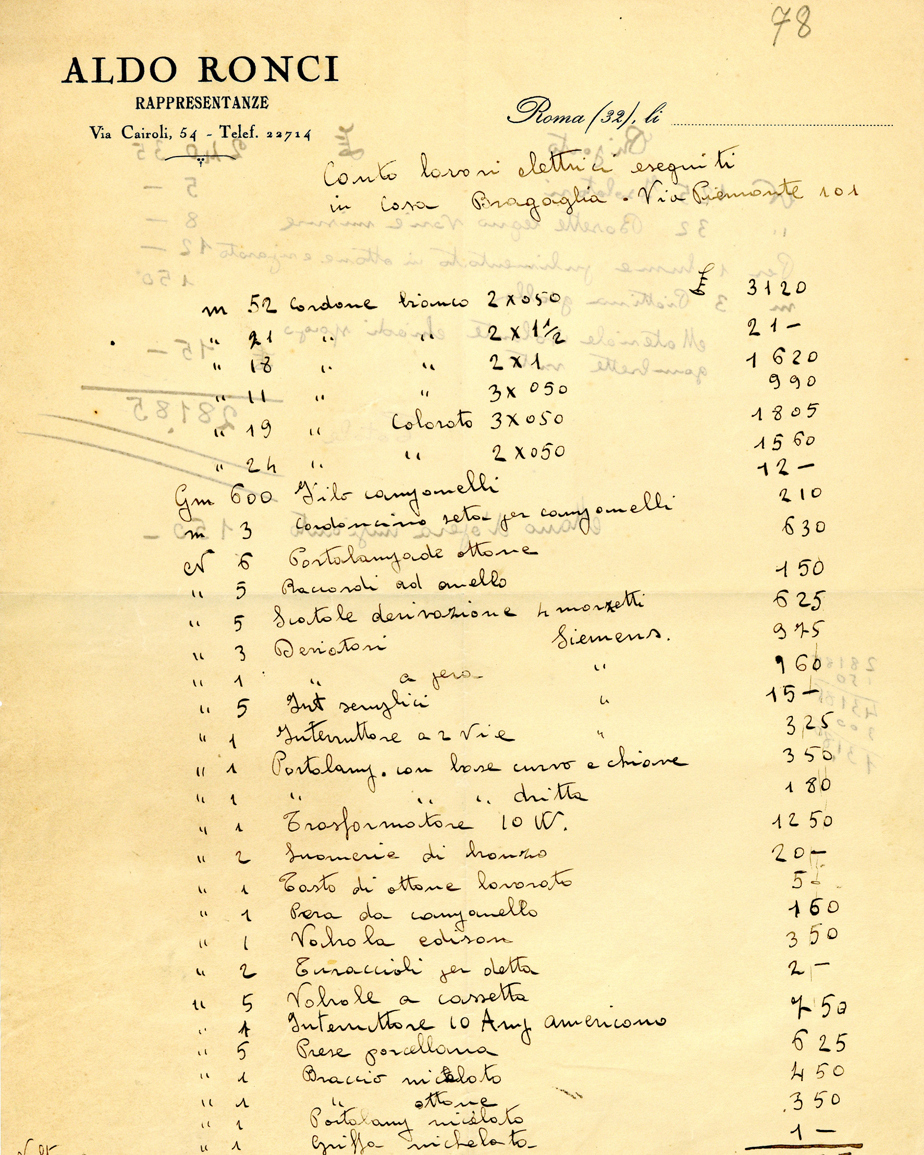 78
ALDO RONCI
RAPPRESENTANZE
Via Cairoli, 54 - Telef. 22714
Roma (32), li
Conto lavori elettrici eseguiti
in casa Bragaglia. Via Piemonte 101
m 52 Cordone bianco 2x050 £ 3120
" 21 " " 2x1½ 21-
" 18 " " 2x1 1620
" 11 " " 3x050 990
" 19 " Colorato 3x050 1805
" 24 " " 2x050 1560
Gm 600 Filo campanelli 12-
m 3 Cordoncino seta per campanelli 210
N 6 Portalampade ottone 630
" 5 Raccordi ad anello 150
" 5 Scatole derivazione 4 morzetti 625
" 3 Deviatori Siemens. 975
" 1 " a pera " 160
" 5 Int semplici " 15-
" 1 Interruttore a 2 vie " 325
" 1 Portalamp. con base curva e chiave 350
" 1 " " " dritta 180
" 1 Trasformatore 10 W. 1250
" 2 Suonerie di bronzo 20-
" 1 Tasto di ottone lavorato 5-
" 1 Pera da campanello 160
" 1 Valvola edison 350
" 2 Turaccioli per detta 2-
" 5 Valvole a cassetta 750
" 1 Interruttore 10 Amp americano
" 5 Prese porcellana 625
" 1 Braccio nicelato 450
" 1 " ottone 350
" 1 Portalamp nicelato
" 1 Griffa nichelata 1-